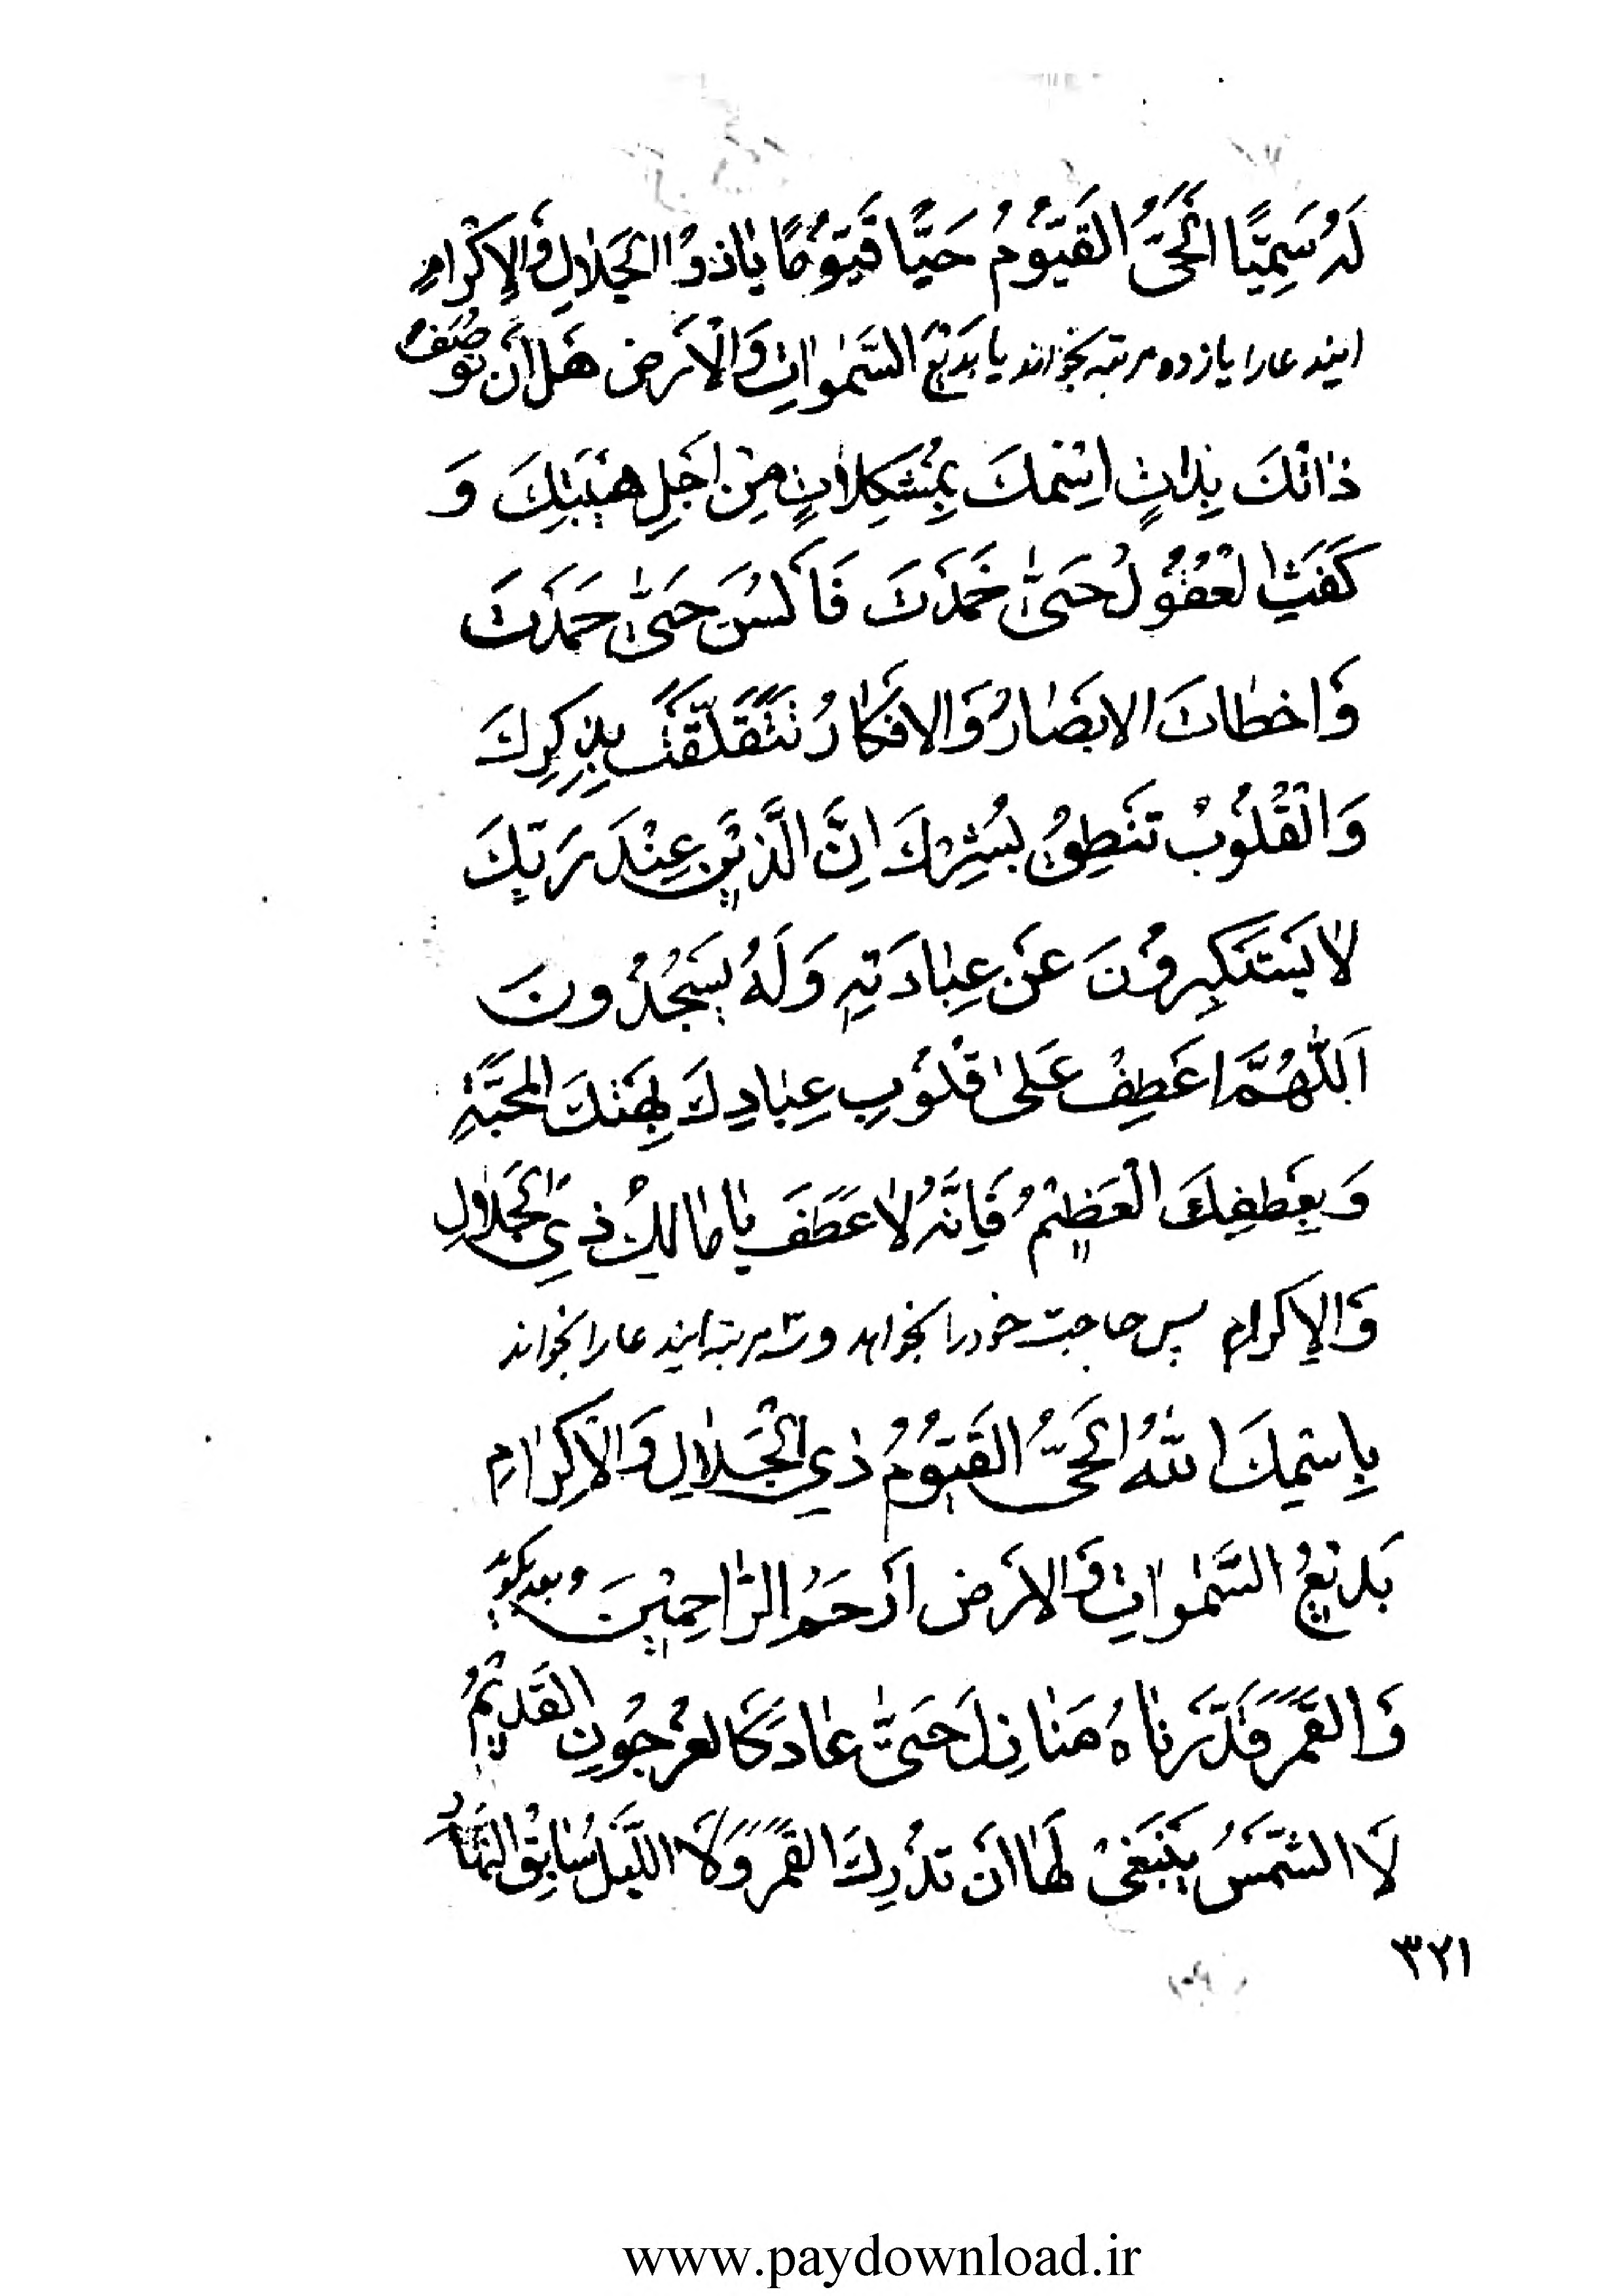 لَهُ سَمِيًّا الْحَىُّ الْقَيُّومُ حَيًّا قَيُّومًا يَا ذُو الْجَلَالِ وَالْإِكْرَامِ
ایندعارا یازده مرتبه بخواند يَا بَدِيْعَ السَّمٰوَاتِ وَالْأَرَضِ هَلْ اَنْ تُوصَفُ
ذٰاتُكَ بِذٰاتِ اِسْمِكَ بِمُشْكِلَاتٍ مِنْ اَجَلِ هَيْبَتِكَ وَ
كَفَتِ الْعُقُولُ حَتّٰى حَمَدَكَ فَاَلسُنَ حَتّٰى حَمَدَتَ
وَاخطٰاتَ الابصَارُ وَالافكَارُ تَتَقَلَّقَتَ بِذِكرِكَ
وَالْقُلُوبُ تَنْطِقُ بِسِرِّكَ اِنَّ الَّذِيْنَ عِنْدَ رَبِّكَ
لَا يَسْتَكْبِرُونَ عَنْ عِبَادَتِهِ وَلَهُ يَسْجُدُونَ
اَللّٰهُمَّ اعَطِفْ عَلىٰ قُلُوبِ عِبَادِكَ بِهَتَكَ الْمَحَبَّةِ
وَبِعِطفِكَ الْعَظِيْمُ فَاِنَّهُ لَا عَطَفَ يَا مَالِكُ ذِي الْجَلَالِ
وَالاِكرَامِ پس حاجت خود را بخواهد و سه مرتبه ایندعارا بخواند
بِاِسْمِكَ اللّٰهُ الْحَىُّ الْقَيُّوُمُ ذِي الْجَلَالِ وَالْاِكْرَامِ
بَدِيْعُ السَّمٰوَاتِ وَالارَضِ اَرْحَمُ الرَّاحِمِيْنَ وبعد بگوید
وَالْقَمَرَ قَدَّرنَاهُ مَنَازِلَ حَتَّى عَادَ كَالعُرجُونِ الْقَدِيْمُ
لَا الشَّمْسُ يَنْبَغِىْ لَهَا اَنْ تُدْرِكَ الْقَمَرَ وَلَا اللَّيْلُ سَابِقُ النَّهَارِ
٣٢١
www.paydownload.ir